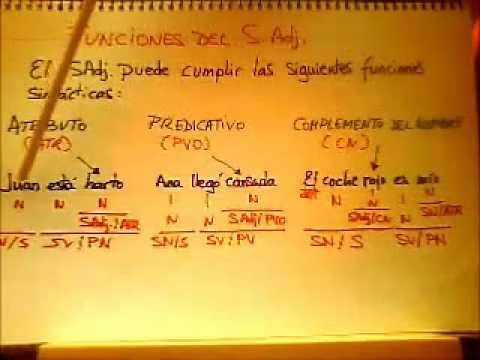 FUNCIONES DEL S. Adj.
El SAdj. puede cumplir las siguientes funciones
sintácticas:
ATRIBUTO PREDICATIVO COMPLEMENTO DEL NOMBRE
(ATR) (PVO) (CN)
Juan está harto Ana llegó cansada El coche rojo es mío
N N N N N
SAdj/ATR N N SAdj/PVO N SAdj/CN N SN/ATR
SN/S SV/PN SN/S SV/PV SN/S SV/PN